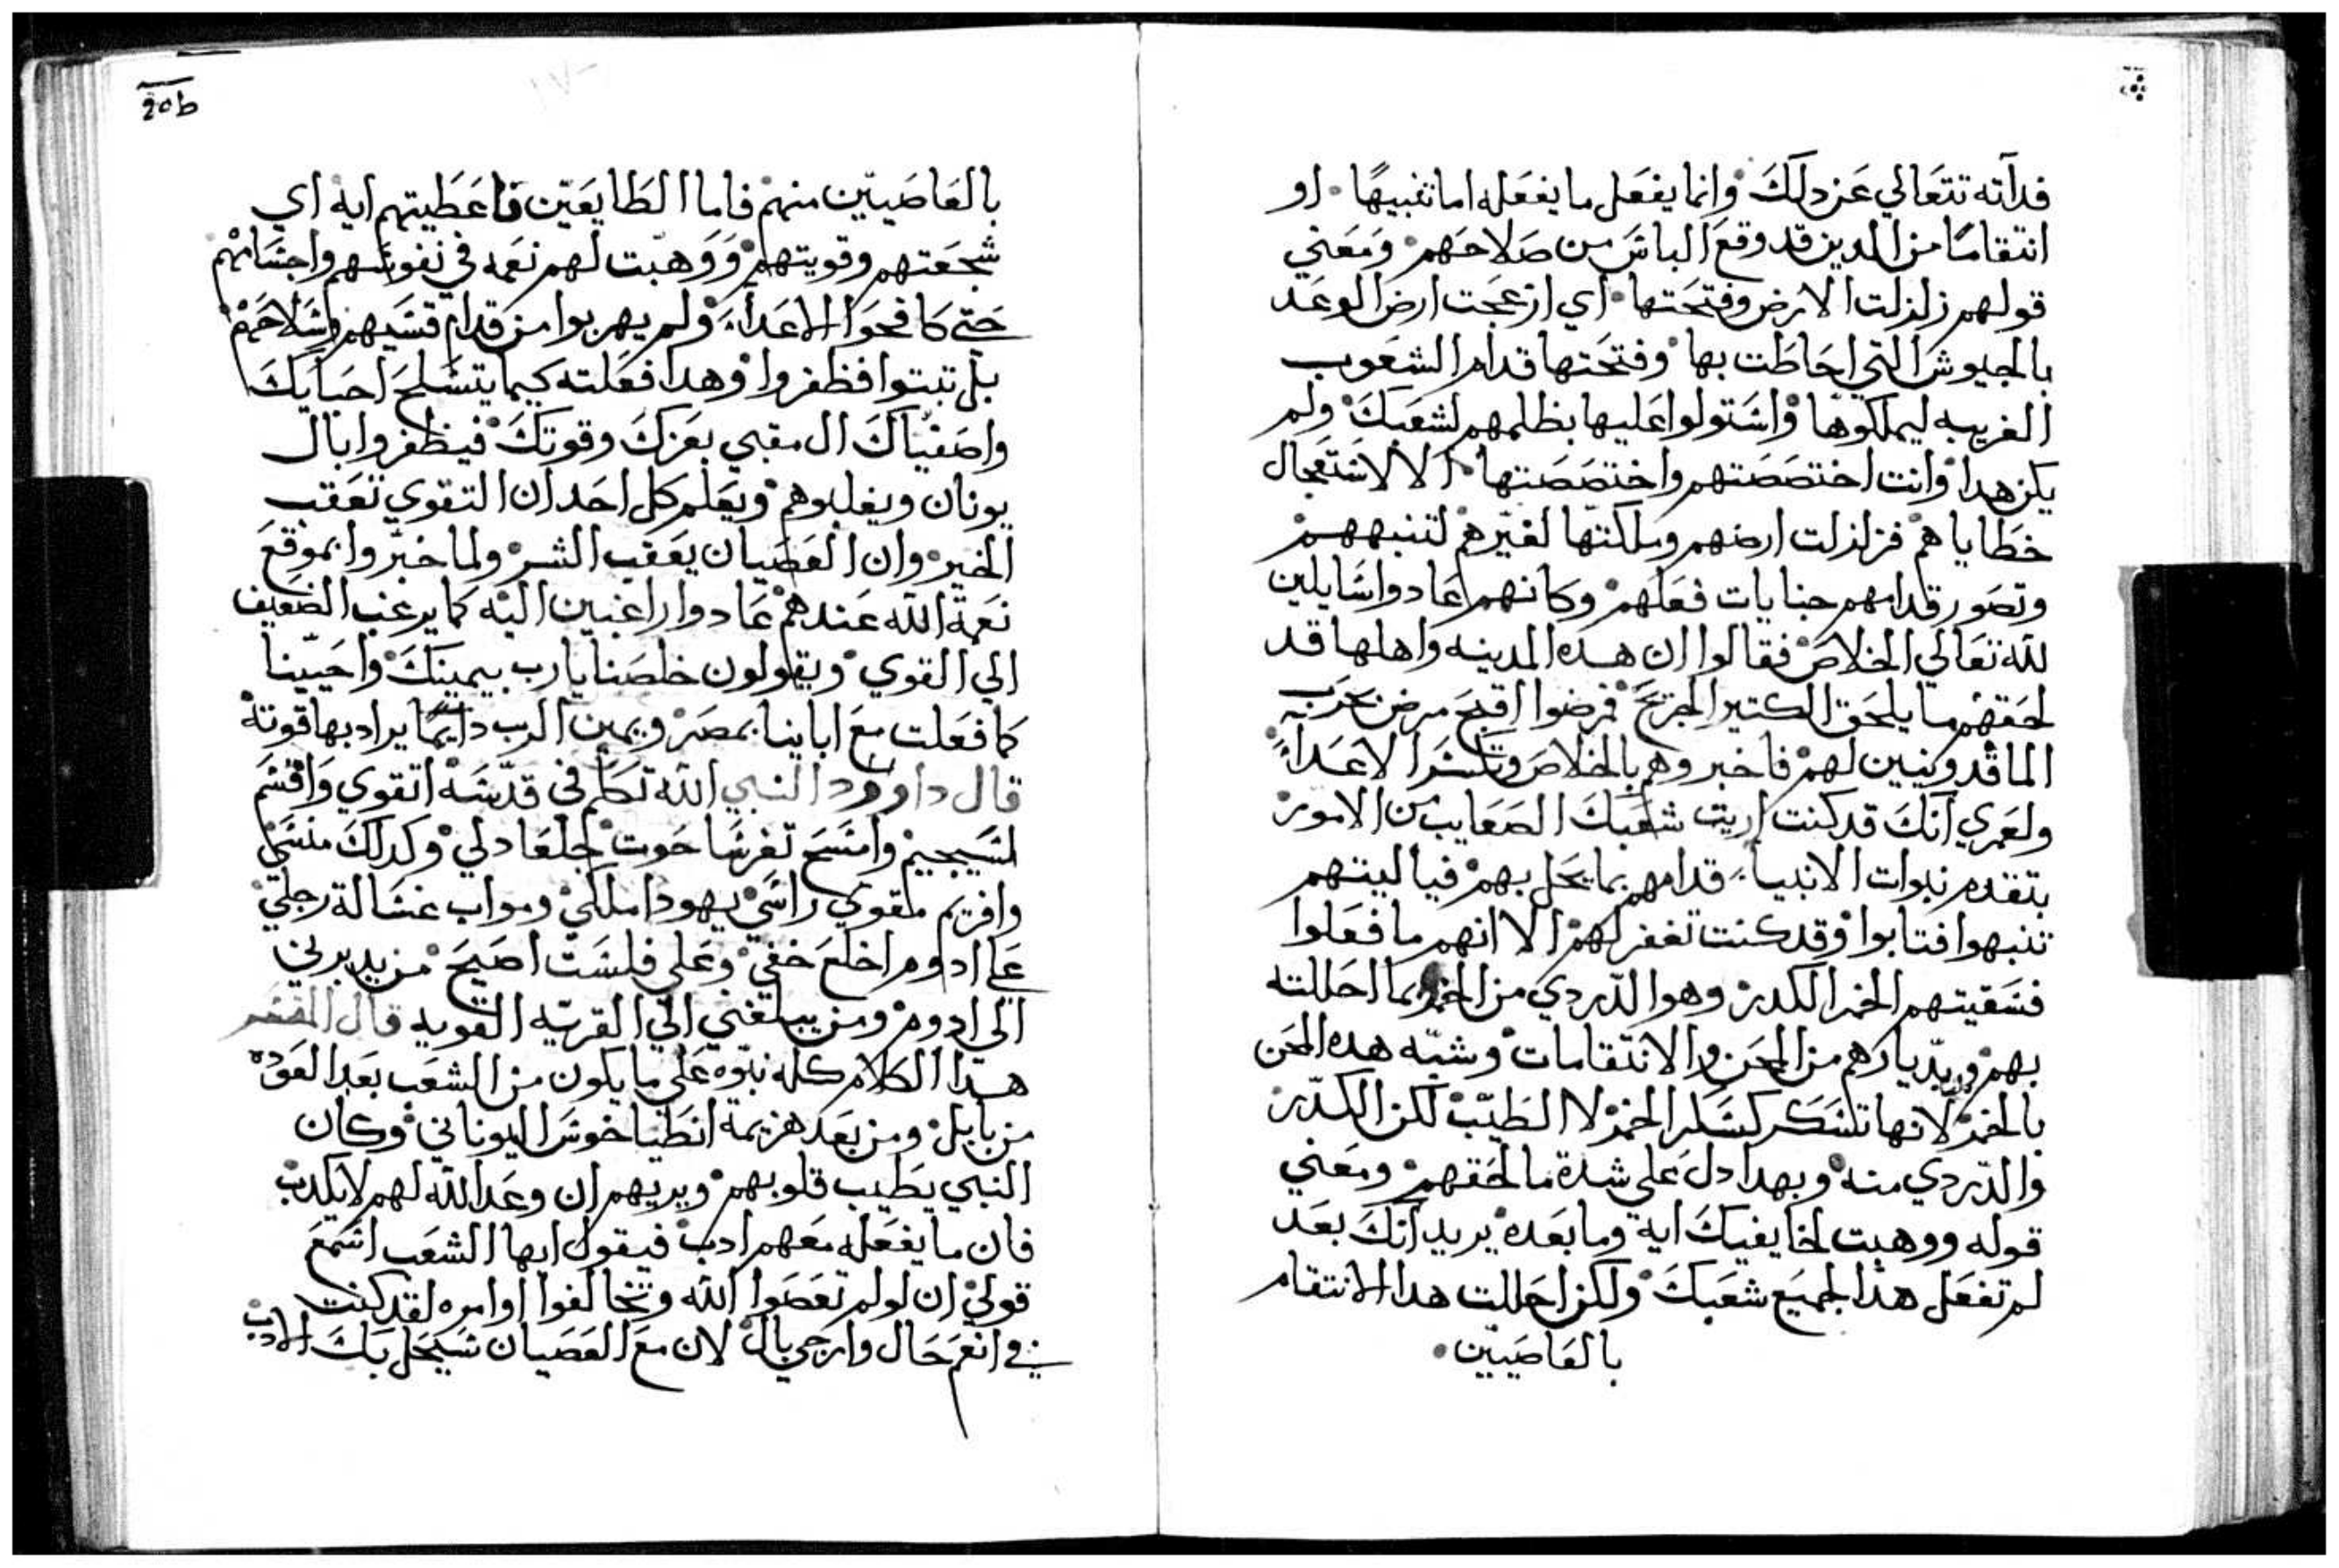 فداته تتعالي عن دلك وانما يفعل ما يفعله اما تنبيهًا او
انتقامًا من الدين قد وقع الباس من صلاحهم ومعني
قولهم زلزلت الارض وفتحتها اي ازعجت ارض الوعد
بالجيوش التي احاطت بها وفتحتها قدام الشعوب
الغريبه ليملكوها واستولوا عليها بظلمهم لشعبك ولم
يكن هدا وانت اختصصتهم واختصصتها الا لاستعجال
خطاياهم فزلزلت ارضهم وملكتها لغيرهم لتنبههم
وتصور قدامهم جنايات فعلهم وكانهم عادوا سايلين
لله تعالي الخلاص فقالوا ان هده المدينه واهلها قد
لحقهم ما يلحق الكتير الجرح فمرضوا اقبح مرض بحرب
الماقدونيين لهم فاخبروهم بالخلاص وتكسر الاعداء
ولعمري انك قد كنت اريت شعبك الصعايب من الامور
بتقدم نبوات الانبياء قدامهم بما يحل بهم فياليتهم
تنبهوا فتابوا وقد كنت تغفر لهم الا انهم ما فعلوا
فسقيتهم الخمر الكدر وهوا الدردي من الخمر بما احللته
بهم وبديارهم من المحن والانتقامات وشبه هده المحن
بالخمر لانها تسكر كسكر الخمر لا الطيب لكن الكدر
والدردي منه وبهدا دل علي شدة ما لحقهم ومعني
قوله ووهبت لخايفيك اية وما بعده يريد انك بعد
لم تفعل هدا لجميع شعبك ولكن احللت هدا الانتقام
بالعاصيين
20b
بالعاصيين منهم فاما الطايعين فاعطيتهم ايه اي
شجعتهم وقويتهم ووهبت لهم نعمه في نفوسهم واجسامهم
حتي كافحوا الاعداء ولم يهربوا من قدام قسيهم وسلاحهم
بل تبتوا فظفروا وهدا فعلته كيما يتسلح احبايك
واصفياك ال مقبي بعزك وقوتك فيظفروا بال
يونان ويغلبوهم ويعلم كل احد ان التقوي تعقب
الخير وان العصيان يعقب الشر ولما خبروا بموقع
نعمة الله عندهم عادوا راغبين اليه كما يرغب الضعيف
الي القوي ويقولون خلصنا يا رب بيمينك واحيينا
كما فعلت مع اباينا بمصر ويمين الرب دايمًا يراد بها قوته
قال داوود النبي الله تكلم في قدسه اتقوي واقسم
لسيجيم وامسح تغرسًا حوت جلعاد لي وكدلك منسي
وافريم مقوي راسي يهودا ملكي ومواب غسالة رجلي
علي ادوم اخلع خفي وعلي فلست اصيح من يدبرني
الي ادوم ومن يبلغني الي القريه القويه قال المفسر
هدا الكلام كله نبوه علي ما يكون من الشعب بعد العوده
من بابل ومن بعد هزيمة انطياخوس اليوناني وكان
النبي يطيب قلوبهم ويريهم ان وعد الله لهم لا يكدب
فان ما يفعله معهم ادب فيقول ايها الشعب اسمع
قولي ان لو لم تعصوا الله وتخالفوا اوامره لقد كنت
في انعم حال وارجي بال لان مع العصيان سيحل بك الادب